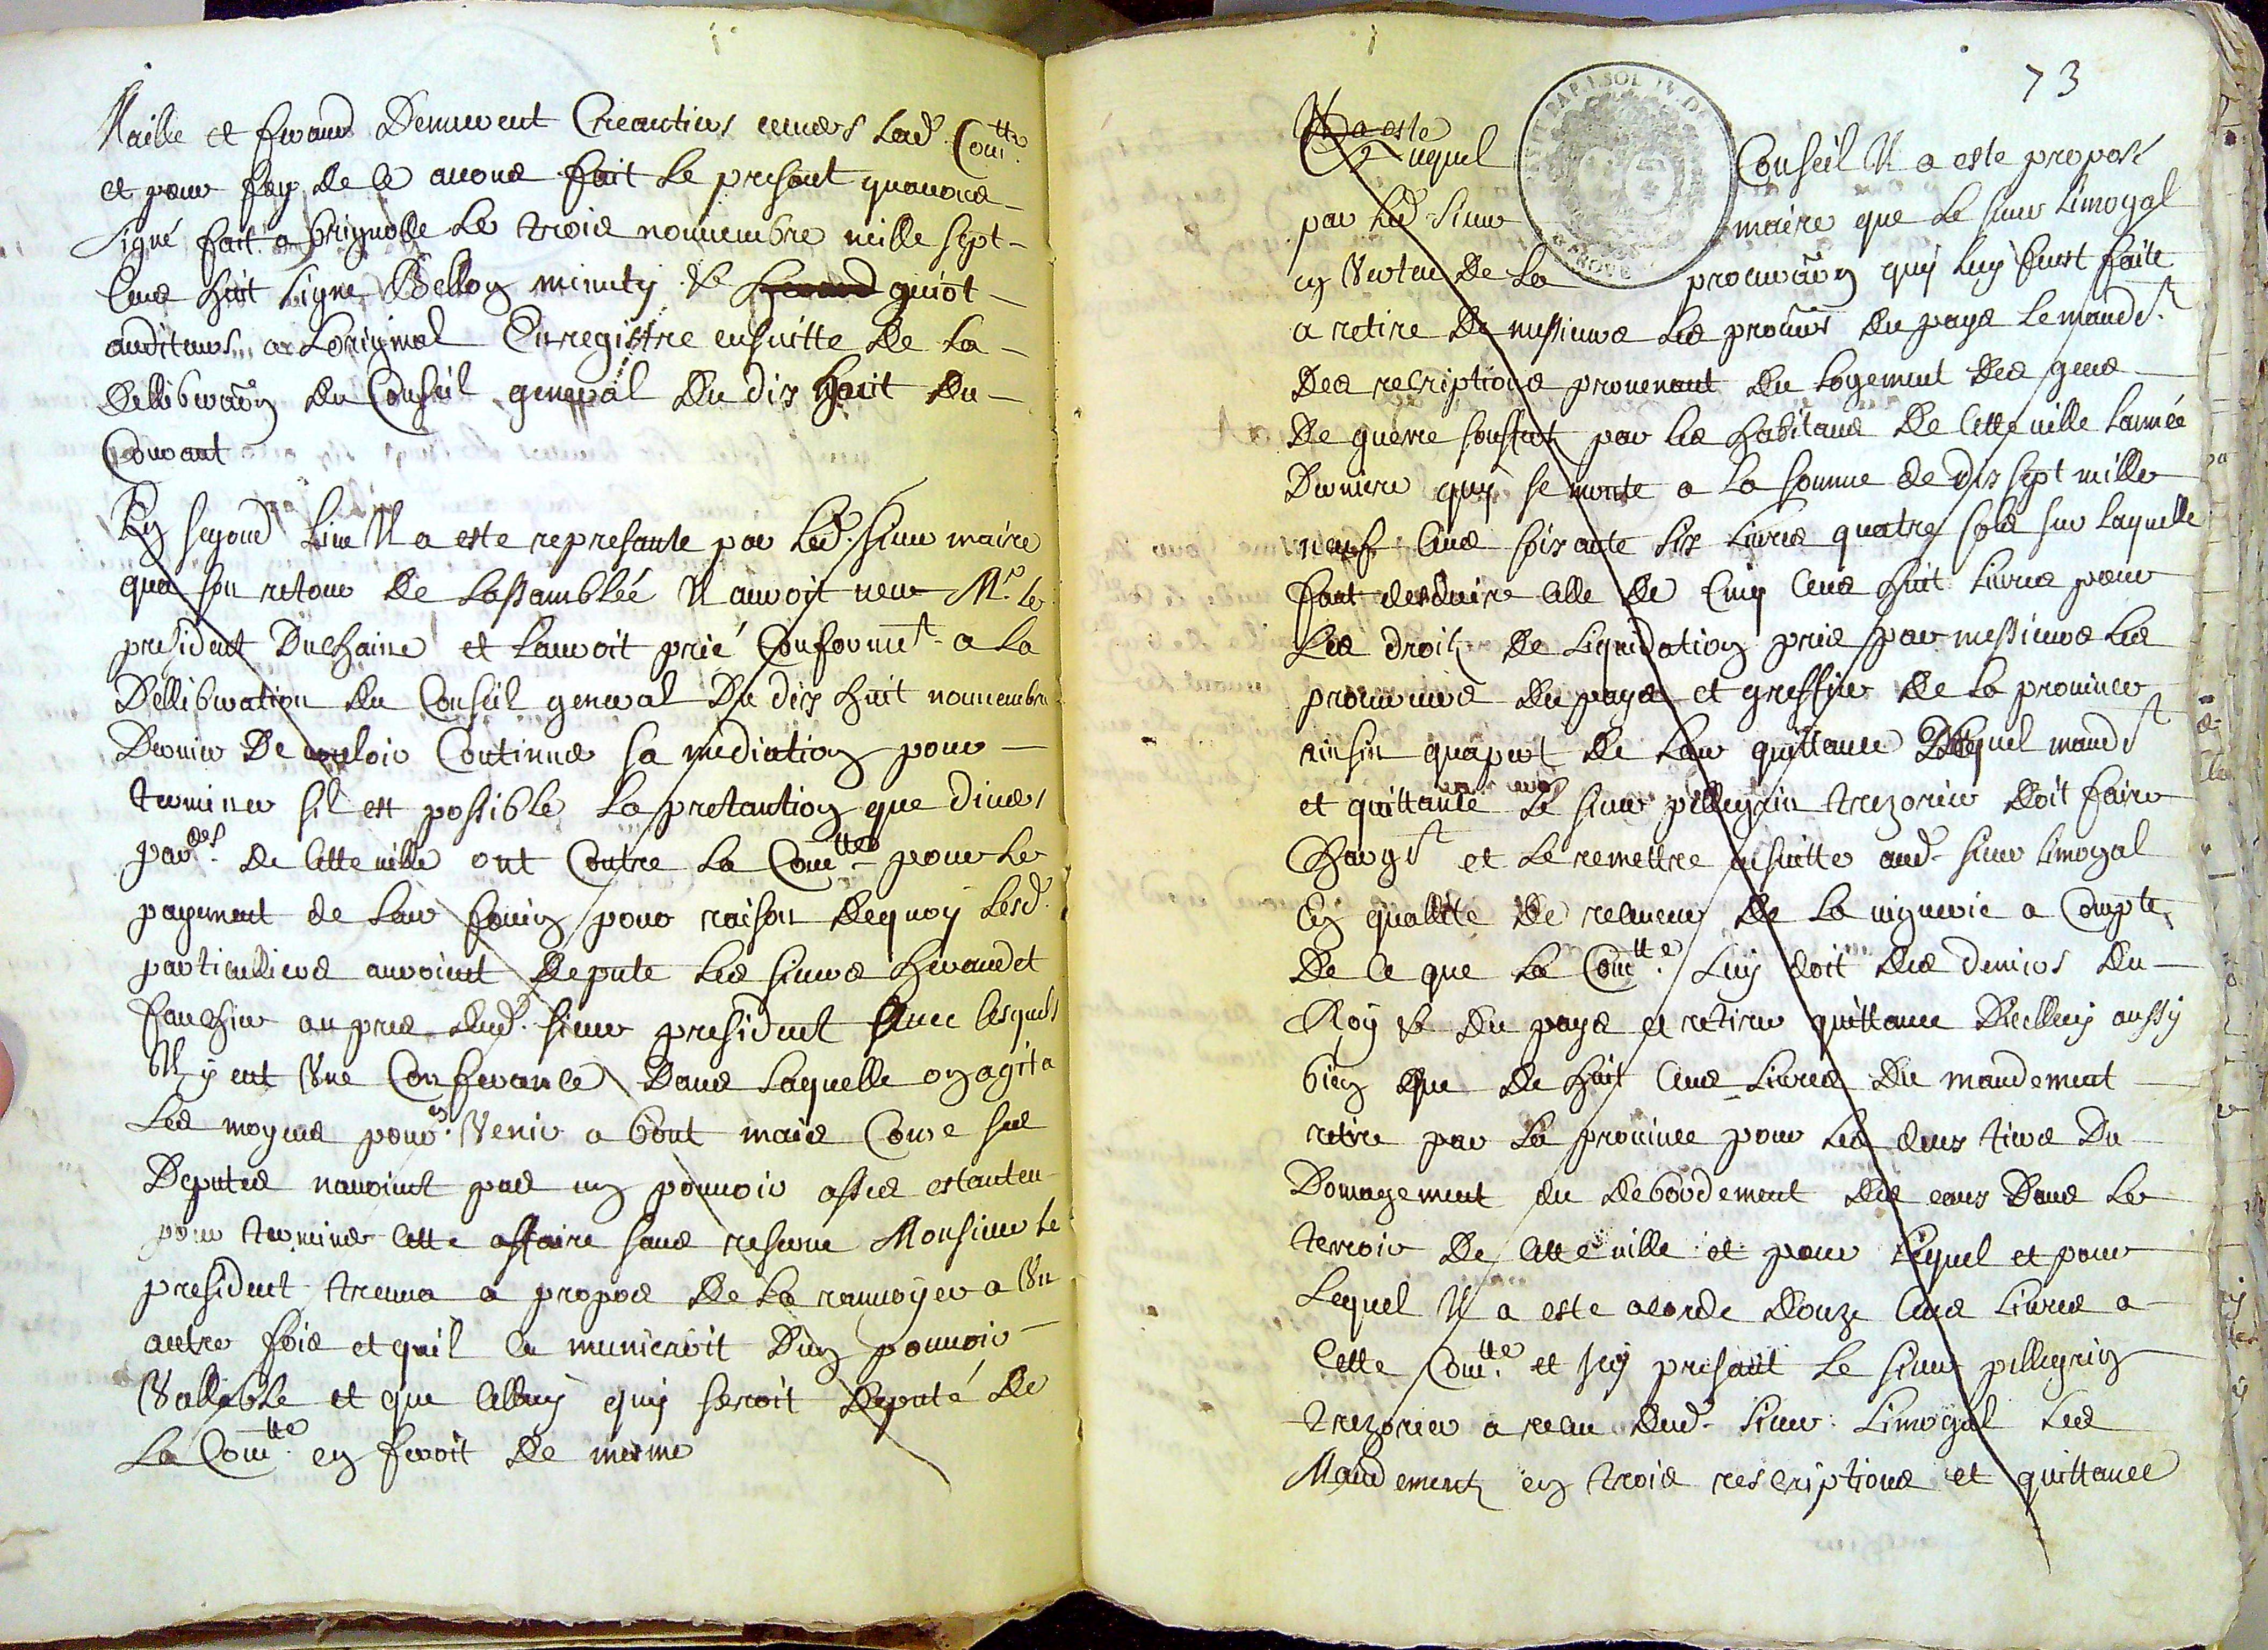 Maille et feraud Demeurent Creantiers enuers Lad. Com.tte
et pour foy de ce auons fait le presant quauons
signé fait a brignolle Le trois nouuembre mille sept
Cens huit signe Bellon minuty & guiot
auditeurs a Loriginal Enregistre ensuitte de La
Delliberaon du Conseil general du dix huit du
Courant
En segond Lieu Il a este represante par Led. sieur maire
qua son retour de Lassamblée Il auroit veu Mr. Le
president Duchaine et Lauroit prié Conformet. a La
Delliberation du Conseil general Du dix huit nouuembre
Dernier De vouloir Continuer sa mediation pour
terminer sil est possible La pretantion que diuers
par.des De Cette ville ont Contre La Com.tte pour Le
payement de Leur foin pour raison dequoy Lesd.
particulliers auroint depute Les sieurs heraud et
fauchier aupres dud. sieur president Auec lesquels
Il y eut Vne Conferance Dans Laquelle on agita
Les moyens pour en Venir a bout mais Come ses
Deputes nauoint pas un pouuoir asses estanteu
pour terminer Cette affaire sans reserue Monsieur Le
president treuua a propos De La ranuoyer a Vn
autre fois et quil Ce munieroit Dun pouuoir
Vallable et que Celluy quy seroit deputé De
La Com.tte en feroit de mesme
73
Il a este
Auquel Conseil Il a este proposé
par Led. sieur maire que Le sieur Limogal
en Vertu De La procuraon quy luy feust faite
a retire De messieurs Les procrs. du pays Le mandt.
Des rescriptions prouenant du Logement des gens
De guerre souffert par les habitans De Cette ville Lannée
Derniere quy se monte a La somme de dix sept mille
neuf Cens soixante six Liures quatre sols sur Laquelle
faut desduire Celle De Cinq Cens huit Liures pour
Les droits De Liquidation pris par messieurs Les
procureurs du pays et greffier De La prouince
ainsin quapert De Leur quittance Duquel mandt
et quittance Le sieur pellegrin trezorier doit faire
Chargt. et Le remettre ensuitte aud. sieur Limogal
En quallite De receueur De La viguerie a Compte
De Ce que La Com.tte Luy doit des deniers du
Roy & du pays et retirer quittance Dicelluy aussy
bien que De huit Cens Liures Du mandement
retire par La prouince pour Les deux tiers Du
Domagement du debordement des eaux Dans Le
terroir De Cette ville et pour Lequel et pour
Lequel Il a este acorde Douze Cens Liures a
Cette Com.tte et Icy presant Le sieur pellegrin
trezorier a receu dud. sieur Limogal Les
Mandements en trois rescriptions et quittance